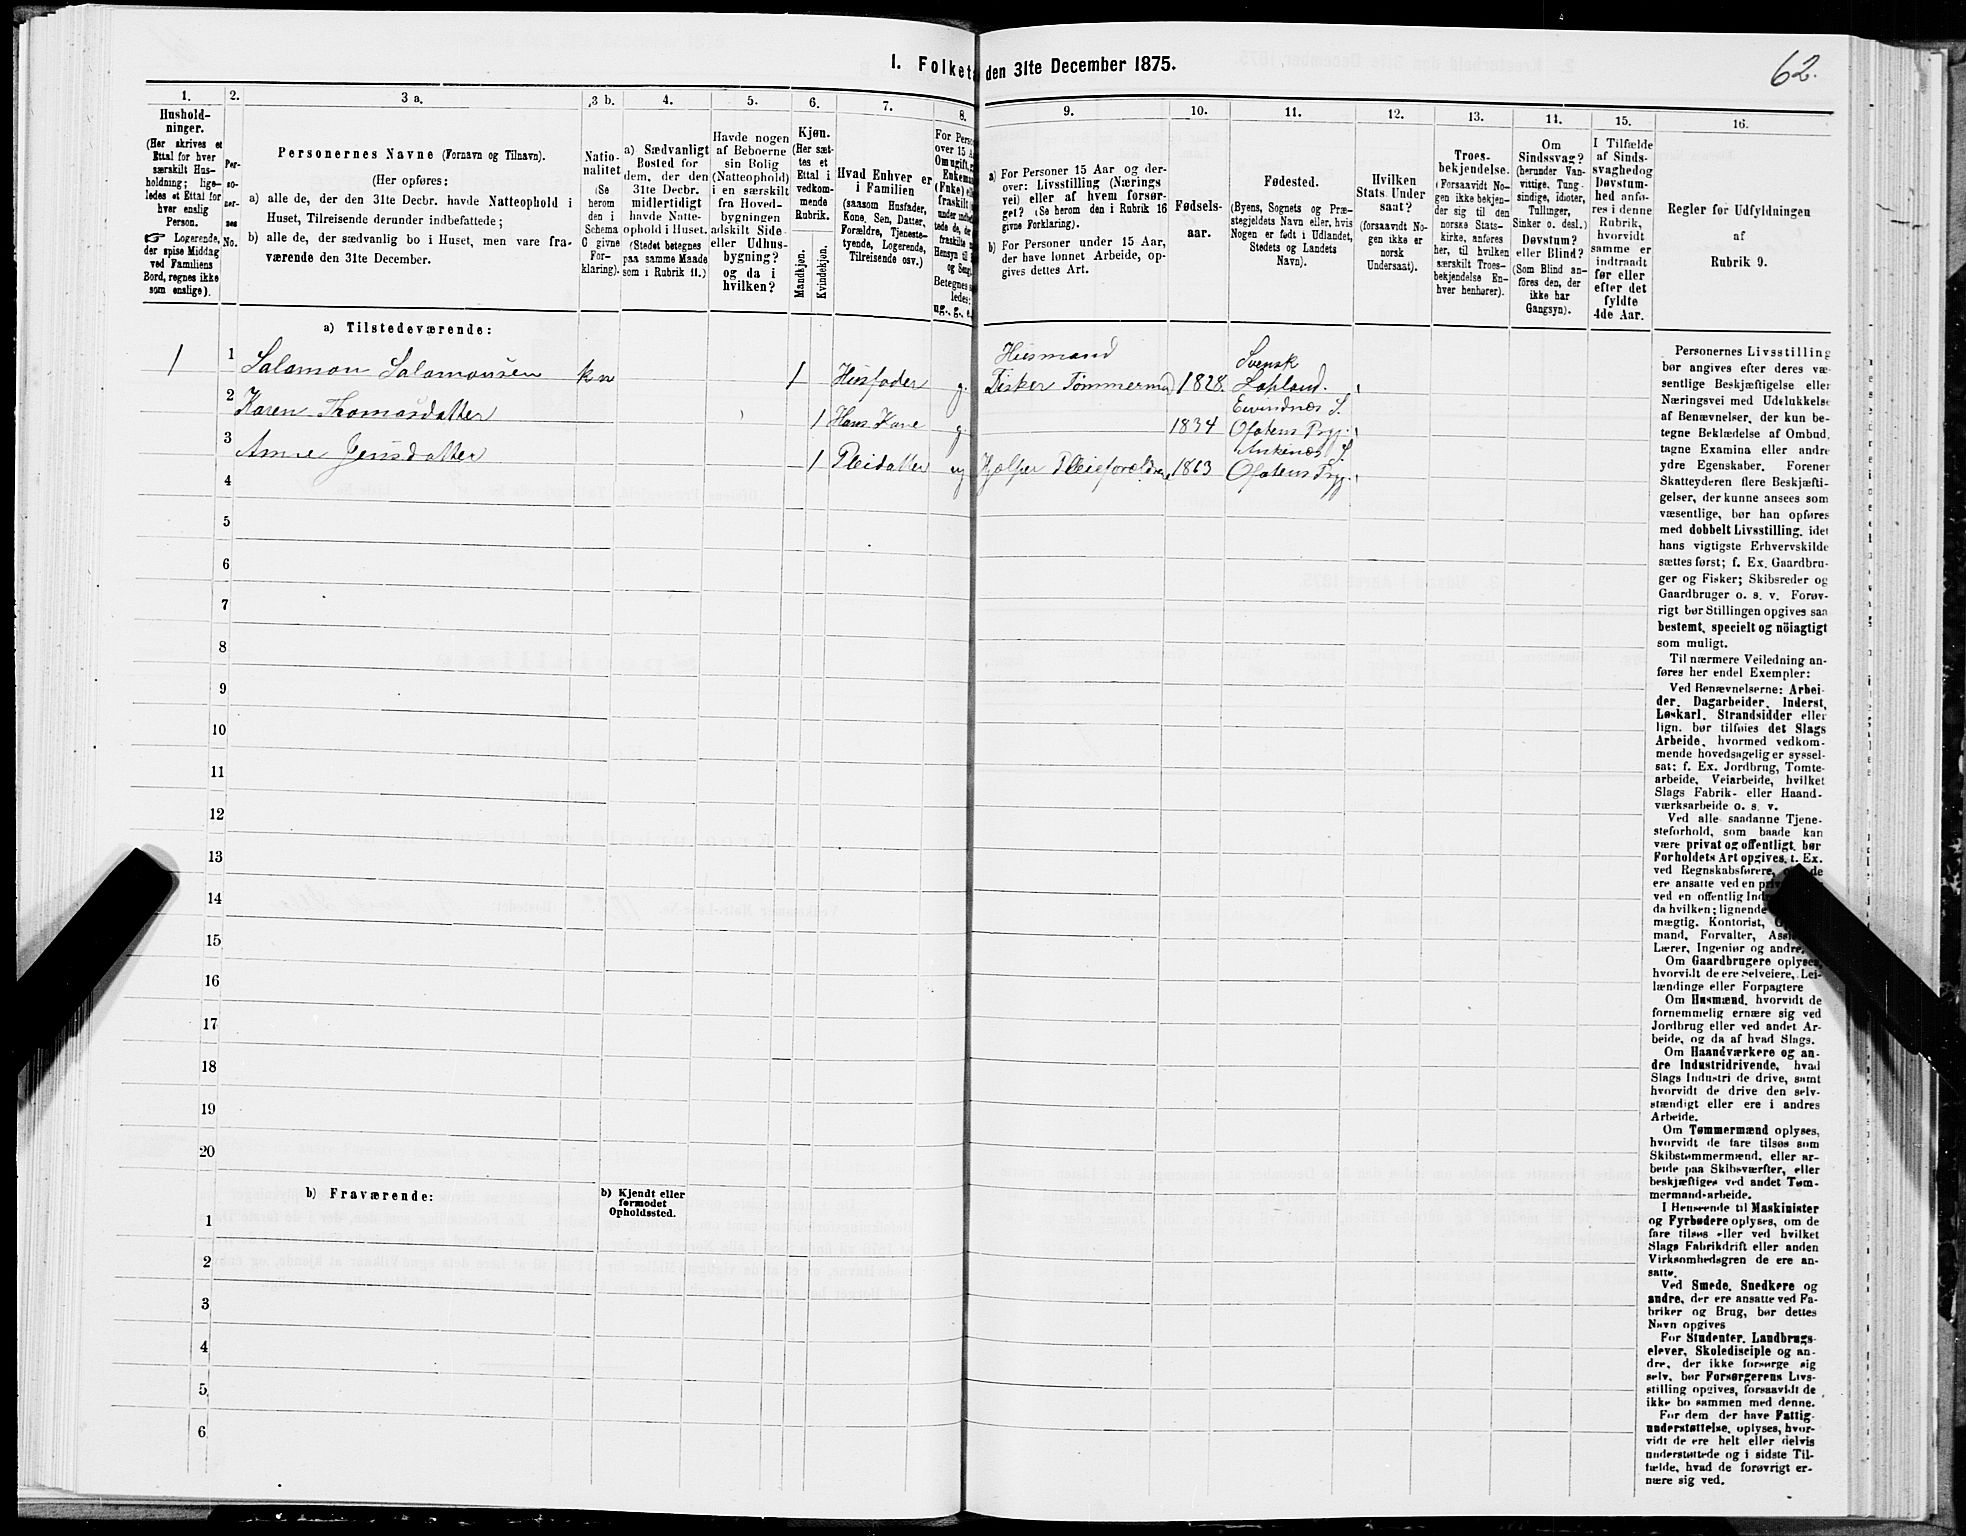 I. Folketæ den 31te December 1875.
62.
1.
Hushold-
ninger.
(Her skrives et
Ettal for hver
særskilt Hus-
holdning; lige-
ledes et Ettal for
hver enslig
Person.
Logerende,
der spise Middag
ved Familiens
Bord, regnes ikke
som enslige).
2.
Per-
so-
ner-
nes
No.
3 a.
Personernes Navne (Fornavn og Tilnavn).
(Her opføres:
a) alle de, der den 31te Decbr. havde Natteophold i
Huset, Tilreisende derunder indbefattede;
b) alle de, der sædvanlig bo i Huset, men vare fra-
værende den 31te December.
3 b.
Natio-
nalitet
(Se
herom
den i
Schema
C givne
For-
klaring).
4.
a) Sædvanligt
Bosted for
dem, der den
31te Decbr.
midlertidigt
havde Natte-
ophold i Huset.
(Stedet betegnes
paa samme Maade
som i Rubrik 11.)
5.
Havde nogen
af Beboerne
sin Bolig
(Natteophold)
i en særskilt
fra Hoved-
bygningen
adskilt Side-
eller Udhus-
bygning?
og da i
hvilken?
6.
Kjøn.
(Her sæt-
tes et
Ettal i
vedkom-
mende
Rubrik.
Mandkjøn.
Kvindekjøn.
7.
Hvad Enhver er
i Familien
(saasom Husfader,
Kone, Søn, Datter,
Forældre, Tjeneste-
tyende, Logerende,
Tilreisende osv.)
8.
For Perso
over 15 A
Om ugift,
Enkem
(Enke) e
fraskilt
under indbe
tede de, de
fraskilte
Hensyn til
og Seng
Betegnes s
ledes:
ug., g., e.
9.
a) For Personer 15 Aar og der-
over: Livsstilling (Nærings
vei) eller af hvem forsør-
get? (Se herom den i Rubrik 16
givne Forklaring).
b) For Personer under 15 Aar,
der have lønnet Arbeide, op-
gives dettes Art.
10.
Fødsels-
aar.
11.
Fødested.
(Byens, Sognets og Præ-
stegjeldets Navn eller, hvis
Nogen er født i Udlandet,
Stedets og Landets
Navn).
12.
Hvilken
Stats Under
saat?
(forsaavidt No-
gen ikke er
norsk
Undersaat).
13.
Troes-
bekjendelse.
(Forsaavidt No-
gen ikke bekjen-
der sig til den
norske Stats-
kirke, anføres
her, til hvilken
særskilt Troes-
bekjendelse En-
hver henhører).
11.
Om
Sindssvag?
(herunder Van-
vittige, Tung-
sindige, idioter,
Tullinger,
Sinker o. desl.)
Døvstum?
eller Blind?
(Som Blind an-
føres den, der
ikke har
Gangsyn).
15.
I Tilfælde
af Sinds-
svaghed og
Døvstum-
hed anfø-
res i denne
Rubrik,
hvorvidt
samme er
indtraadt
før eller
efter det
fyldte
4de Aar.
16.
Regler før Udfyldningen
af
Rubrik 9.
a) Tilstedeværende:
1 1 Salamon Salamonsen kn 1 Husfader g. Husmand Fisker Tømmermd 1828. Svensk Lapland.
2 Karen Thomasdatter 1 Hans Kone g. 1834 Evindnæs S. Ofotens Prgj.
3 Anne Jensdatter 1 Pleidatter ug Hjelper Pleieforældre 1863 Ankenæs S. Ofotens Prgj.
4
5
6
7
8
9
10
11
12
13
14
15
16
17
18
19
20
b) Fraværende:
b) Kjendt eller
formodet
Opholdssted.
1
2
3
4
5
6
Personernes Livsstilling
bør angives efter deres væ-
sentlige Beskjæftigelse eller
Næringsvei med Udelukkelse
af Benævnelser, der kun be-
tegne Beklædelse af Ombud,
tagne Examina eller andre
ydre Egenskaber. Forener
Skatteyderen flere Beskjæfti-
gelser, der kunne ansees som
væsentlige, bør han opføres
med dobbelt Livsstilling, idet
hans vigtigste Erhvervskilde
sættes først; f. Ex. Gaardbru-
ger og Fisker; Skibsreder og
Gaardbruger o. s. v. Forøv-
rigt bør Stillingen opgives saa
bestemt, specielt og nöiagtigt
som muligt.
Til nærmere Veiledning an-
føres her endel Exempler:
Ved Benævnelserne: Arbei-
der, Dagarbeider, Inderst,
Løskarl, Strandsidder eller
lign. bør tilføies det Slags
Arbeide, hvormed vedkom-
mende hovedsagelig er syssel-
sat; f. Ex. Jordbrug, Tomte-
arbeide, Veiarbeide, hvilket
Slags Fabrik- eller Haand-
værksarbeide o. s. v.
Ved alle saadanne Tjene-
steforhold, som baade kan
være privat og offentligt, bør
Forholdets Art opgives, f. Ex.
ved Regnskabsførere, de
ere ansatte ved en
ved en offentlig
da hvilken; lignende
mægtig, Kontorist,
mand, Forvalter,
Lærer, Ingeniør og andre.
Om Gaardbrugere oplyses,
hvorvidt de ere Selveiere, Lei-
lændinge eller Forpagtere
Om Husmænd, hvorvidt de
fornemmelig ernære sig ved
Jordbrug eller ved andet Ar-
beide, og da af hvad Slags.
Om Haandværkere og an-
dre Industridrivende, hvad
Slags Industri de drive, samt
hvorvidt de drive den selv-
stændigt eller ere i andres
Arbeide.
Om Tømmermænd oplyses,
hvorvidt de fare tilsøs som
Skibstømmermænd, eller ar-
beide paa Skibsværfter, eller
beskjæftiges ved andet Tøm-
mermandsarbeide.
I Henseende til Maskinister
og Fyrbødere oplyses, om de
fare tilsøs eller ved hvilket
Slags Fabrikdrift eller anden
Virksomhedsgren de ere an-
satte.
Ved Smede, Snedkere og
andre, der ere ansatte ved Fa-
briker og Brug, bør dettes
Navn opgives
For Studenter, Landbrugs-
elever, Skoledisciple og an-
dre, der ikke forsørge sig
selv, bør Forsørgerens Livs-
stilling opgives, forsaavidt de
ikke bo sammen med denne.
For dem der have Fattig-
understøttelse, oplyses, hvor-
vidt de ere helt eller delvis
understøttede og i sidste Til-
fælde, hvad de forøvrigt er-
nære sig ved.